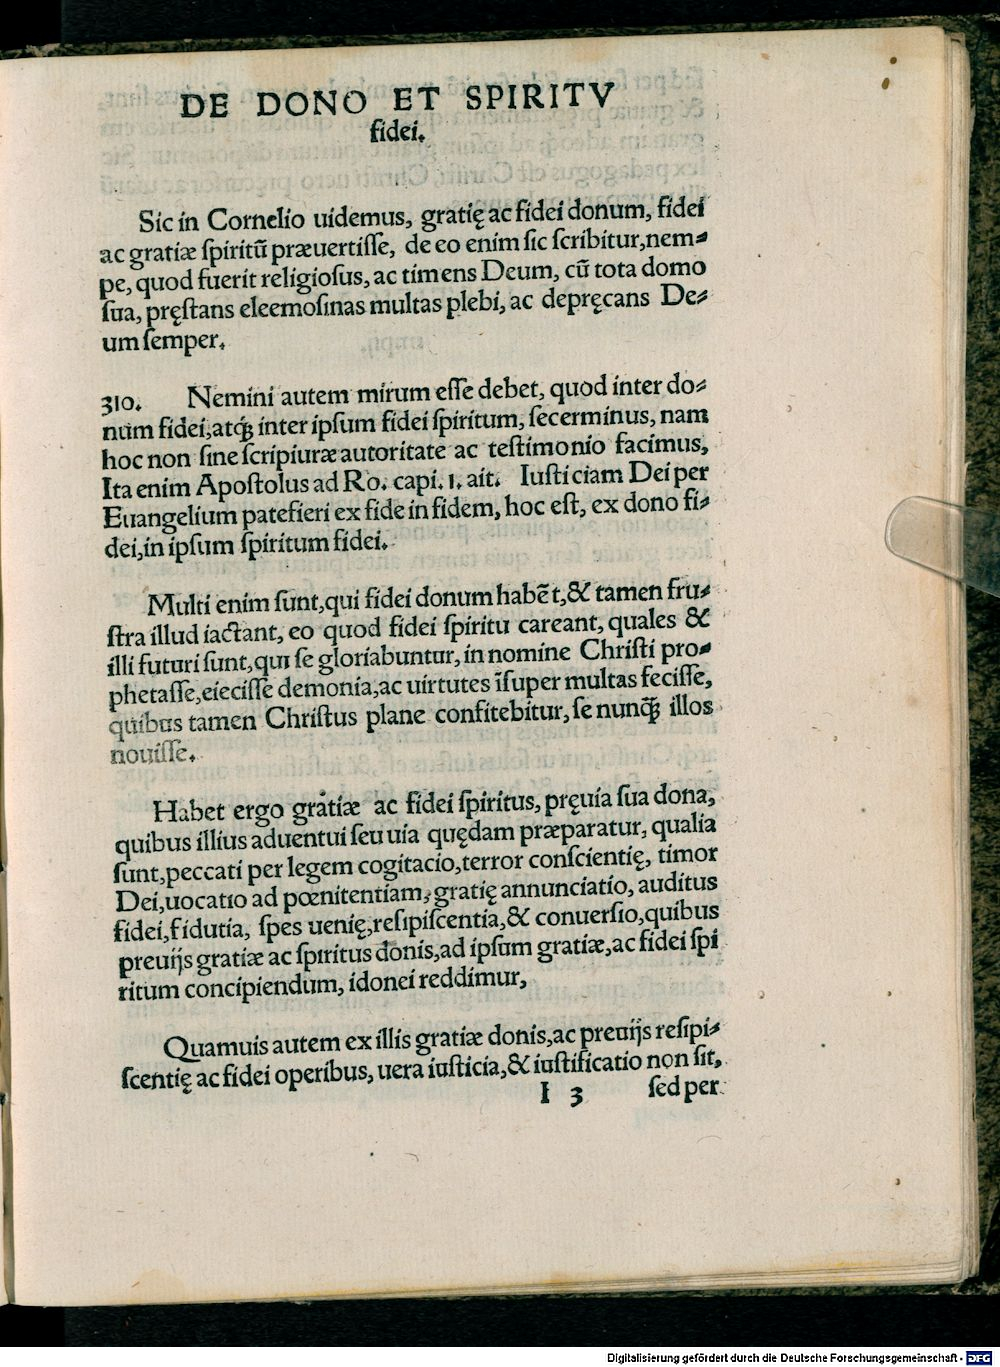 DE DONO ET SPIRITV
fidei.
Sic in Cornelio uidemus, gratię ac fidei donum, fidei
ac gratiæ ſpiritū præuertiſſe, de eo enim ſic ſcribitur, nem⸗
pe, quod fuerit religioſus, ac timens Deum, cū tota domo
ſua, pręſtans eleemoſinas multas plebi, ac depręcans De⸗
um ſemper.
310. Nemini autem mirum eſſe debet, quod inter do⸗
num fidei, atꝙ inter ipſum fidei ſpiritum, ſecerminus, nam
hoc non ſine ſcripiuræ autoritate ac teſtimonio facimus,
Ita enim Apoſtolus ad Ro. capi. 1. ait. Iuſticiam Dei per
Euangelium patefieri ex fide in fidem, hoc eſt, ex dono fi⸗
dei, in ipſum ſpiritum fidei.
Multi enim ſunt, qui fidei donum habēt, & tamen fru⸗
ſtra illud iactant, eo quod fidei ſpiritu careant, quales &
illi futuri ſunt, qui ſe gloriabuntur, in nomine Chriſti pro⸗
phetaſſe, eieciſſe demonia, ac uirtutes īſuper multas feciſſe,
quibus tamen Chriſtus plane confitebitur, ſe nunꝙ̄ illos
nouiſſe.
Habet ergo gratiæ ac fidei ſpiritus, pręuia ſua dona,
quibus illius aduentui ſeu uia quędam præparatur, qualia
ſunt, peccati per legem cogitacio, terror conſcientię, timor
Dei, uocatio ad pœnitentiam, gratię annunciatio, auditus
fidei, fidutia, ſpes uenię, reſipiſcentia, & conuerſio, quibus
preuijs gratiæ ac ſpiritus donis, ad ipſum gratiæ, ac fidei ſpi
ritum concipiendum, idonei reddimur,
Quamuis autem ex illis gratiæ donis, ac preuijs reſipi⸗
ſcentię ac fidei operibus, uera iuſticia, & iuſtificatio non ſit,
I 3 ſed per
Digitalisierung gefördert durch die Deutsche Forschungsgemeinschaft - DFG